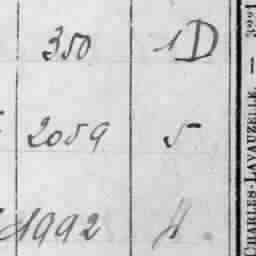 350 1D
2059 5
1992 4.
CHARLES-LAVAUZELLE — 3221